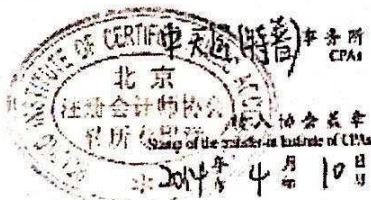 INSTITUTE OF CERTIFI
中天运(特普)事务所
CPAs
北京
注册会计师协会
转所专用章
转入协会盖章
Stamp of the transfer-in Institute of CPAs
2014年 4月 10日